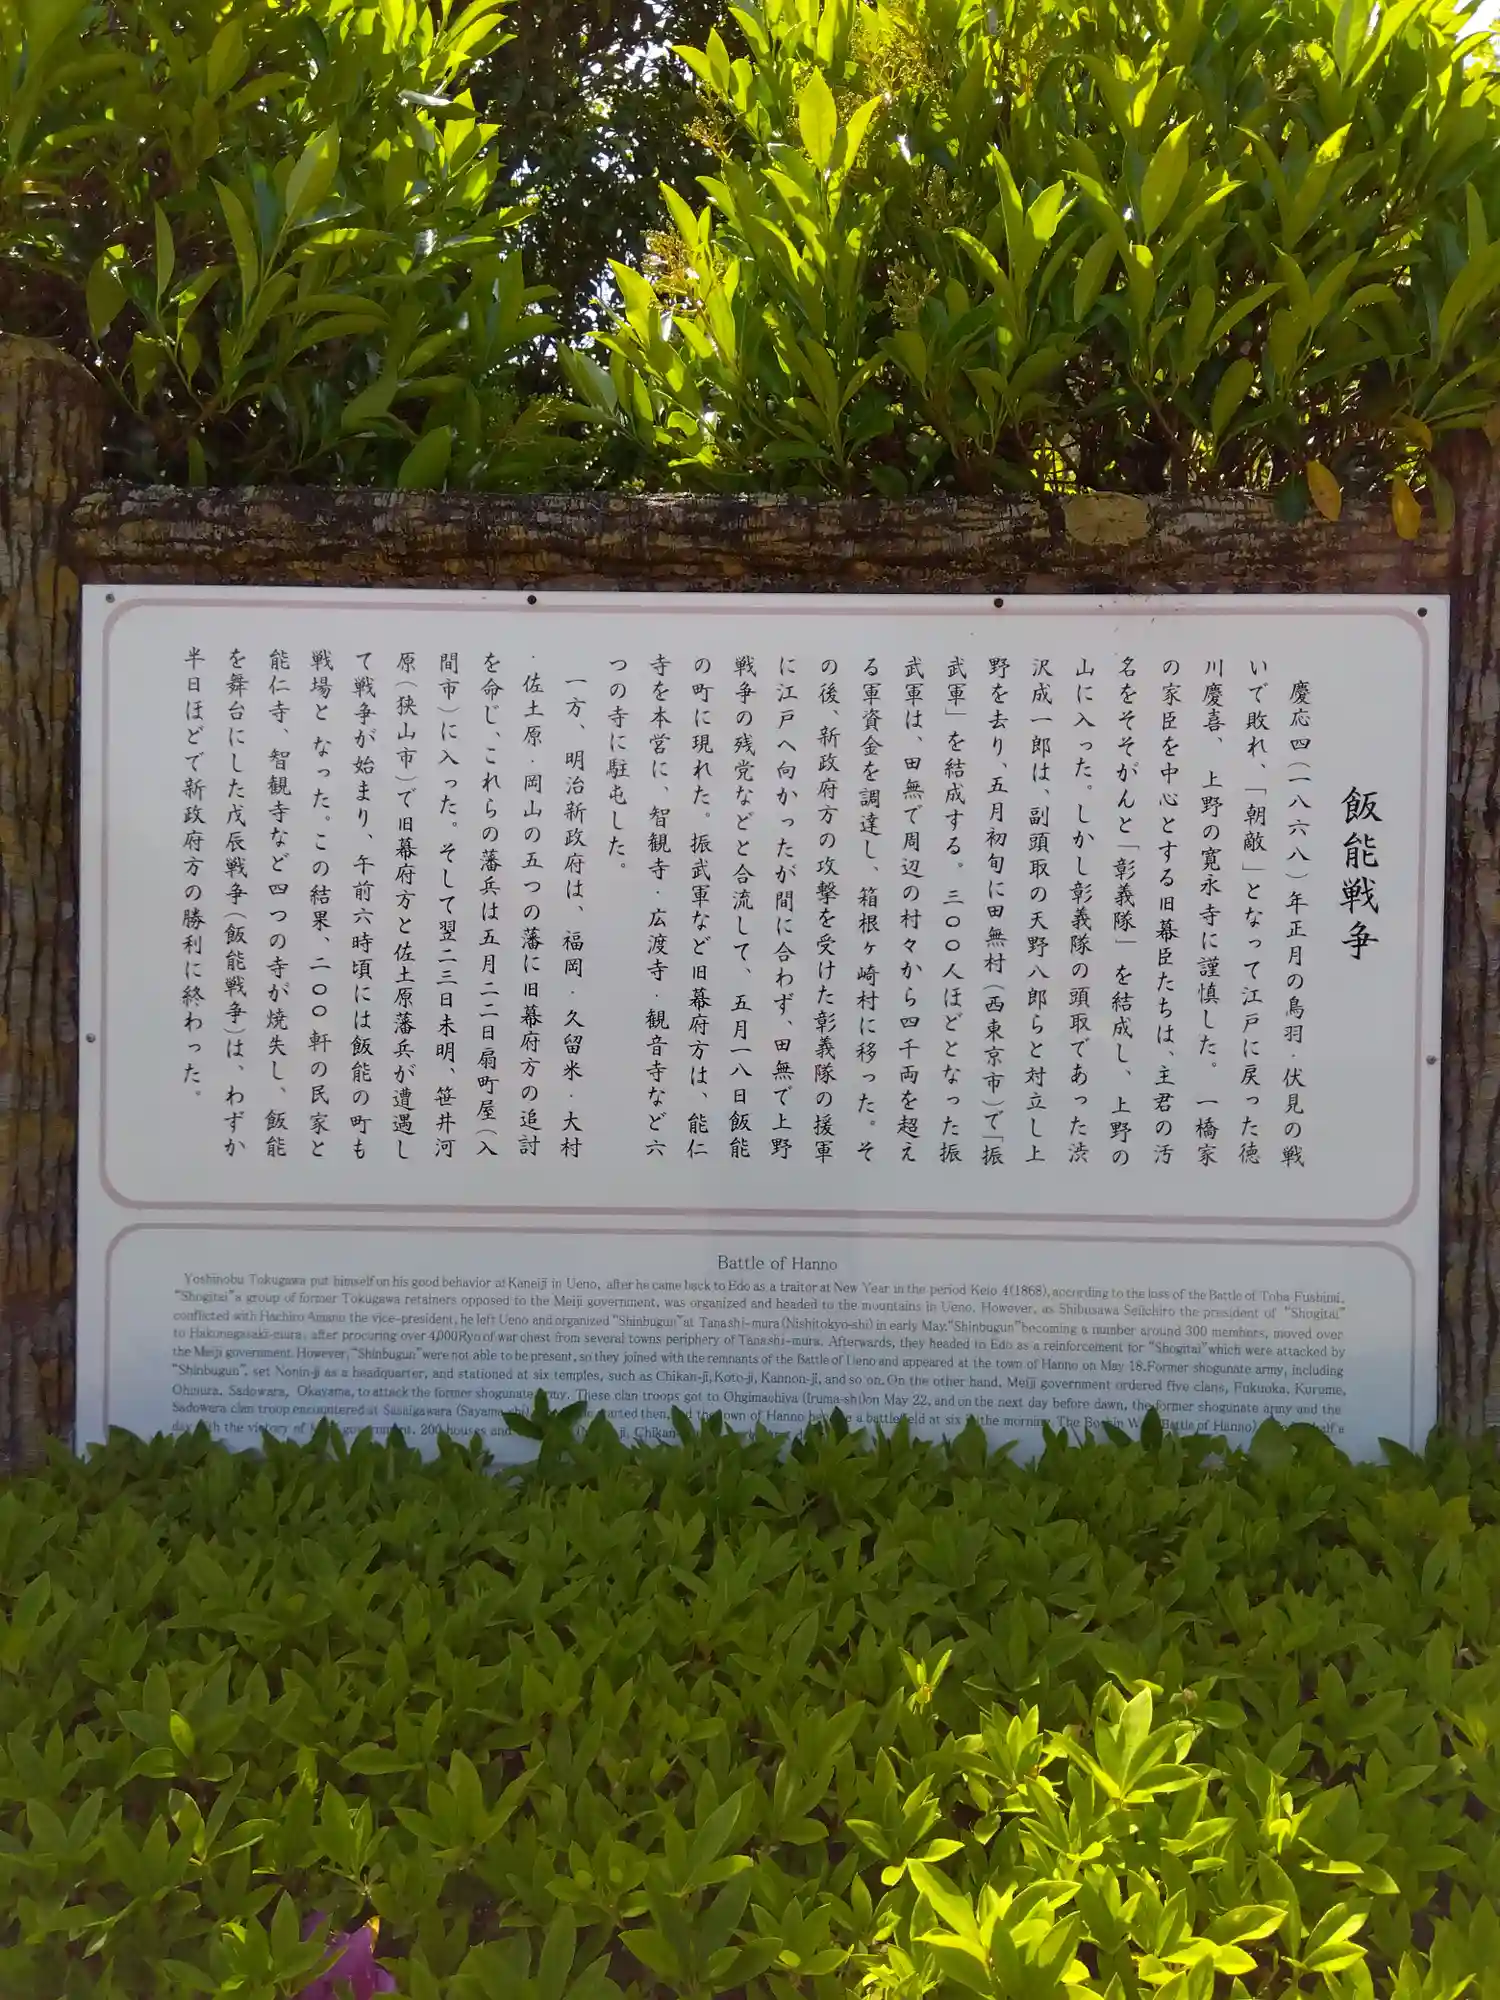 飯能戦争
慶応四(一八六八)年正月の鳥羽・伏見の戦
いで敗れ、「朝敵」となって江戸に戻った徳
川慶喜、上野の寛永寺に謹慎した。一橋家
の家臣を中心とする旧幕臣たちは、主君の汚
名をそそがんと「彰義隊」を結成し、上野の
山に入った。しかし彰義隊の頭取であった渋
沢成一郎は、副頭取の天野八郎らと対立し上
野を去り、五月初旬に田無村(西東京市)で「振
武軍」を結成する。三〇〇人ほどとなった振
武軍は、田無で周辺の村々から四千両を超え
る軍資金を調達し、箱根ヶ崎村に移った。そ
の後、新政府方の攻撃を受けた彰義隊の援軍
に江戸へ向かったが間に合わず、田無で上野
戦争の残党などと合流して、五月一八日飯能
の町に現れた。振武軍など旧幕府方は、能仁
寺を本営に、智観寺・広渡寺・観音寺など六
つの寺に駐屯した。
一方、明治新政府は、福岡・久留米・大村
・佐土原・岡山の五つの藩に旧幕府方の追討
を命じ、これらの藩兵は五月二二日扇町屋(入
間市)に入った。そして翌二三日未明、笹井河
原(狭山市)で旧幕府方と佐土原藩兵が遭遇し
て戦争が始まり、午前六時頃には飯能の町も
戦場となった。この結果、二〇〇軒の民家と
能仁寺、智観寺など四つの寺が焼失し、飯能
を舞台にした戊辰戦争(飯能戦争)は、わずか
半日ほどで新政府方の勝利に終わった。
Battle of Hanno
Yoshinobu Tokugawa put himself on his good behavior at Kaneiji in Ueno, after he came back to Edo as a traitor at New Year in the period Keio 4(1868), according to the loss of the Battle of Toba Fushimi.
"Shogitai" a group of former Tokugawa retainers opposed to the Meiji government, was organized and headed to the mountains in Ueno. However, as Shibusawa Seiichiro the president of "Shogitai"
conflicted with Hachiro Amano the vice-president, he left Ueno and organized "Shinbugun" at Tanashi-mura (Nishitokyo-shi) in early May. "Shinbugun" becoming a number around 300 members, moved over
to Hakonegasaki-mura, after procuring over 4,000Ryo of war chest from several towns periphery of Tanashi-mura. Afterwards, they headed to Edo as a reinforcement for "Shogitai" which were attacked by
the Meiji government. However, "Shinbugun" were not able to be present, so they joined with the remnants of the Battle of Ueno and appeared at the town of Hanno on May 18. Former shogunate army, including
"Shinbugun", set Nonin-ji as a headquarter, and stationed at six temples, such as Chikan-ji, Koto-ji, Kannon-ji, and so on. On the other hand, Meiji government ordered five clans, Fukuoka, Kurume,
Ohmura, Sadowara, Okayama, to attack the former shogunate army. These clan troops got to Ohgimachiya (Iruma-shi)on May 22, and on the next day before dawn, the former shogunate army and the
Sadowara clan troop encountered at Sasaigawara (Sayama-shi) started then, town of Hanno a battlefield at six the morning. The Battle of Hanno) half a
day with the victory of government. 200 houses and Chikan-